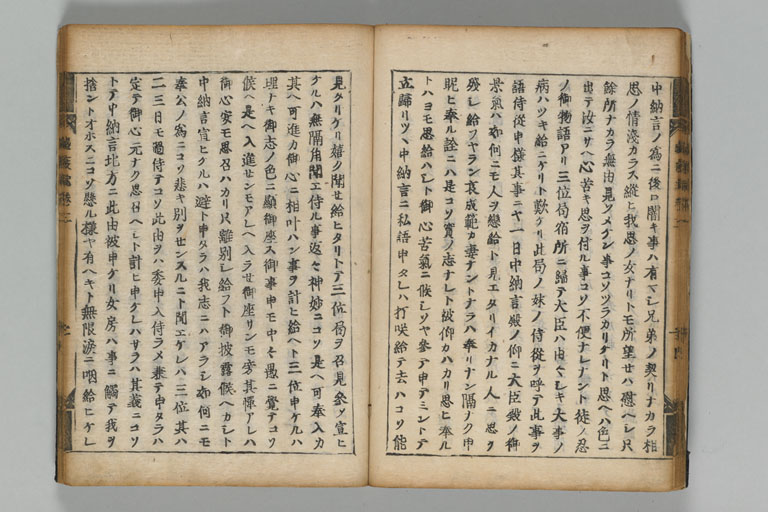 中納言ノ為ニ後ロ闇キ事ハ有マシ兄弟ノ契リナカラ相
思ノ情浅カラス縦ヒ我思ノ女ナリトモ所望セハ慰ヘシ只
餘所ナカラ無由見ソメケン事コソツラカリケリト思ヘハ色ニ
出テ汝ニサヘ心苦キ思ヲ付ル事コソ不便ナレナント徒ノ忍
ノ御物語アリ三位局宿所ニ帰テ大臣ハ由々シキ大事ノ
病ハツキ給ニケリト歎ケリ此局ノ妹ノ侍従ヲ呼テ此事ヲ
語侍従申様其事ニヤ一日中納言殿ノ仰ニ大臣殿ノ御
景氣ハ如何ニモ人ヲ戀給ト見エタリイカナル人ニ思ヲ
残シ給フヤラン哀成範カ妻ナントナラハ奉リナン隔ナク申
昵ヒ奉ル詮ニハ是コソ實ノ志ナレト被仰カハカリ思ヒ奉ル
トハヨモ思給ハシト御心苦氣ニ候シソヤ参テ申テミントテ
立帰リツヽ中納言ニ私語申タレハ打咲給テ去ハコソ能
見タリケリ嬉ク聞セ給ヒタリトテ三位局ヲ召見参ソ宣ヒ
ケルハ無隔角聞エ侍ル事返々神妙ニコソ是ヘ可奉入カ
其ヘ可進カ御心ニ相叶ハン事ヲ計ヒ給ヘト三位申ケルハ
埋ナキ御志ノ色ニ顕御座ス御事申モ中々愚ニ覚テコソ
候ヘ是ヘ入進セシモアレヘ入ラセ御座リンモ旁其憚アレハ
御心安モ思召ハカリ只離別シ給フト御披露候ヘカシト
中納言宣ヒケルハ避ト申タラハ我志ニハアラシ如何ニモ
奉公ノ為ニコソ悲キ別ヲセンスルニト聞エケレハ三位其ハ
二三日モ過侍テコソ此由ヲハ委申入侍ラメ兼テ申タラハ
定テ御心元ナク思召ヘシト計ヒ申ケレハサラハ其義ニコソ
トテ中納言北方ニ此由被申ケリ女房ハ事ニ觸テ我ヲ
捨ントオホスニコソ懸ル様ヤ有ヘキト無限涙ニ咽給ヒケレ